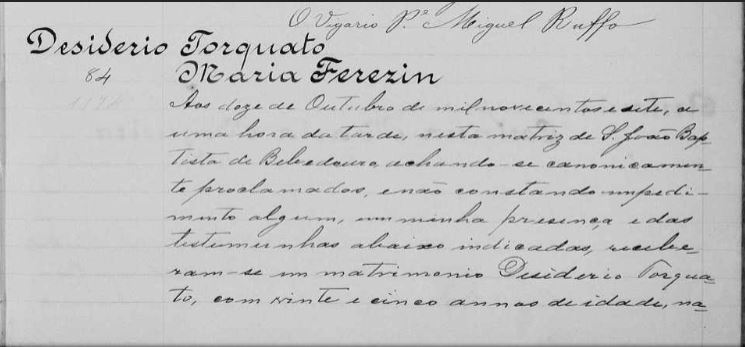 O Vigario Pe Miguel Ruffo
Desiderio Torquato
84 Maria Ferezin
Aos doze de Outubro de mil novecentos e sete, a
uma hora da tarde, nesta matriz de S. João Bap-
tista de Bebedouro, achando-se canonicamen-
te proclamados, e não constando impedi-
mento algum, em minha presença e das
testemunhas abaixo indicadas, recebe-
ram-se em matrimonio Desiderio Torqua-
to, com vinte e cinco annos de idade, na-